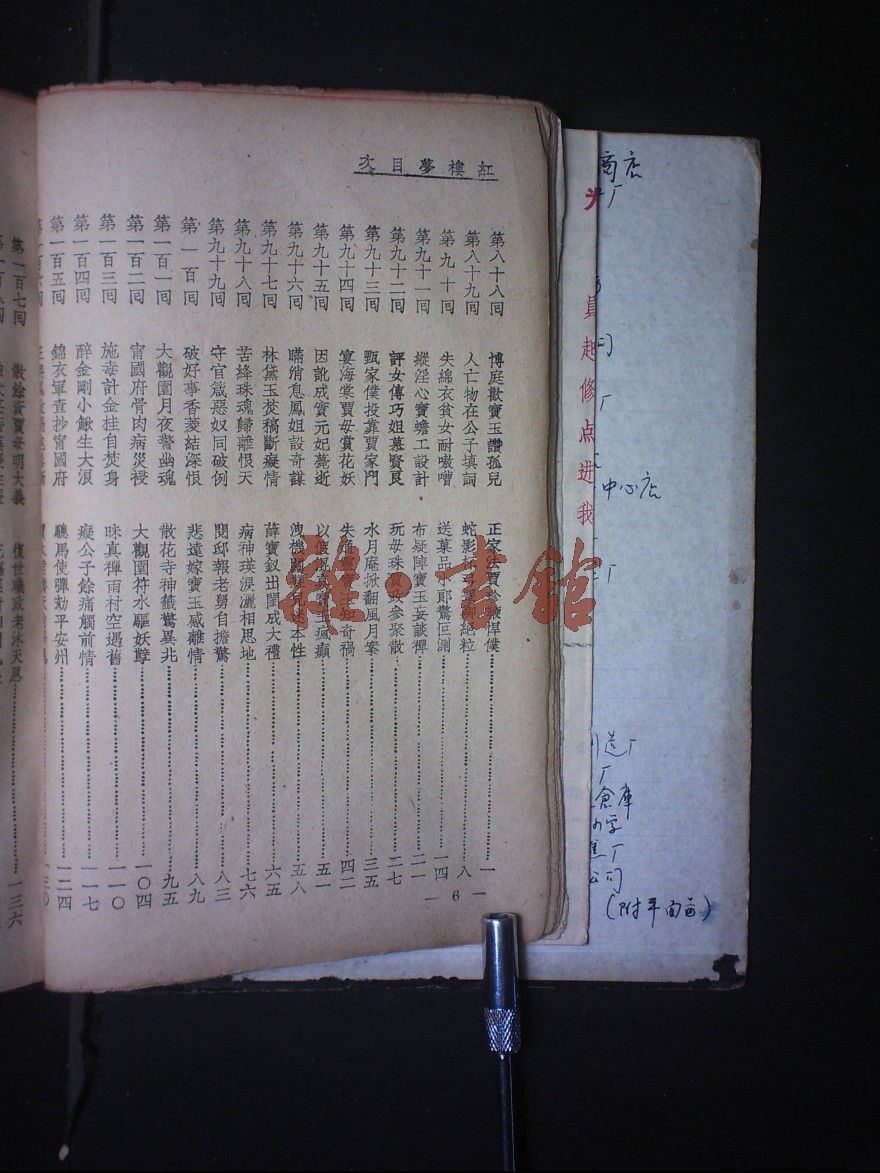 紅樓夢目次
第八十八回 博庭歡寶玉讚孤兒 正家法賈珍鞭悍僕 一
第八十九回 人亡物在公子填詞 蛇影杯弓顰卿絕粒 八
第九十回 失綿衣貧女耐嗷嘈 送菓品小郎驚叵測 一四
第九十一回 縱淫心寶蟾工設計 布疑陣寶玉妄談禪 二一
第九十二回 評女傳巧姐慕賢良 玩母珠賈政參聚散 二七
第九十三回 甄家僕投靠賈家門 水月庵掀翻風月案 三五
第九十四回 宴海棠賈母賞花妖 失通靈寶玉知奇禍 四二
第九十五回 因訛成實元妃薨逝 以假混真寶玉瘋癲 五一
第九十六回 瞞消息鳳姐設奇謀 洩機關顰兒迷本性 五八
第九十七回 林黛玉焚稿斷癡情 薛寶釵出閨成大禮 六五
第九十八回 苦絳珠魂歸離恨天 病神瑛淚灑相思地 七六
第九十九回 守官箴惡奴同破例 閱邸報老舅自擔驚 八三
第一百回 破好事香菱結深恨 悲遠嫁寶玉感離情 八九
第一百一回 大觀園月夜警幽魂 散花寺神籤驚異兆 九五
第一百二回 甯國府骨肉病災祲 大觀園符水驅妖孼 一〇四
第一百三回 施毒計金桂自焚身 昧真禪雨村空遇舊 一一〇
第一百四回 醉金剛小鰍生大浪 癡公子餘痛觸前情 一一七
第一百五回 錦衣軍查抄甯國府 驄馬使彈劾平安州 一二四
第一百六回 一三〇
第一百七回 散餘資賈母明大義 復世職政老沐天恩 一三六
— 6 —
雜·書館
員起修点进我
商店
厂
中心店
厂
造厂
厂
倉庫
小学
厂
公司
(附平面图)